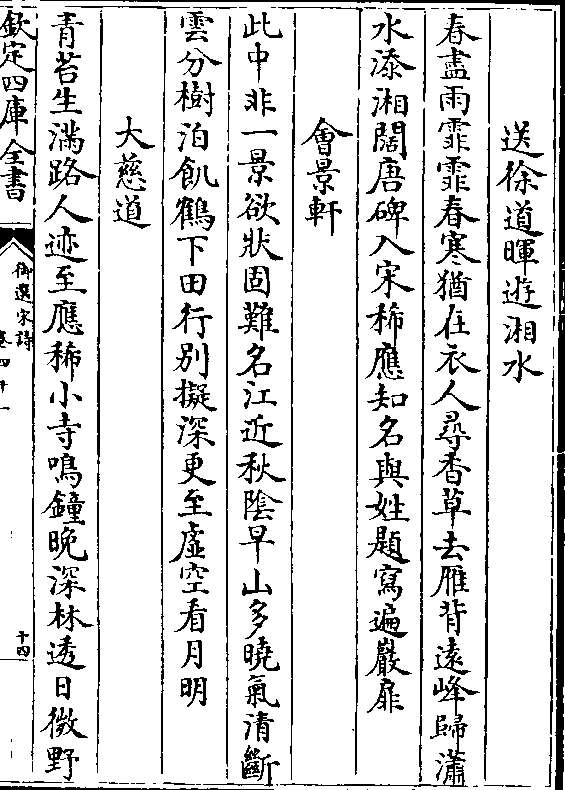 送徐道暉遊湘水
春盡雨霏霏春寒猶在衣人尋香草去雁背遠峰歸瀟
水添湘闊唐碑入宋稀應知名與姓題寫遍巖扉
會景軒
此中非一景欲狀固難名江近秋陰早山多曉氣清斷
雲分樹泊飢鶴下田行别擬深更至虛空看月明
大慈道
青苔生滿路人迹至應稀小寺鳴鐘晚深林透日微野
欽定四庫全書
御選宋詩
卷四十一
十四